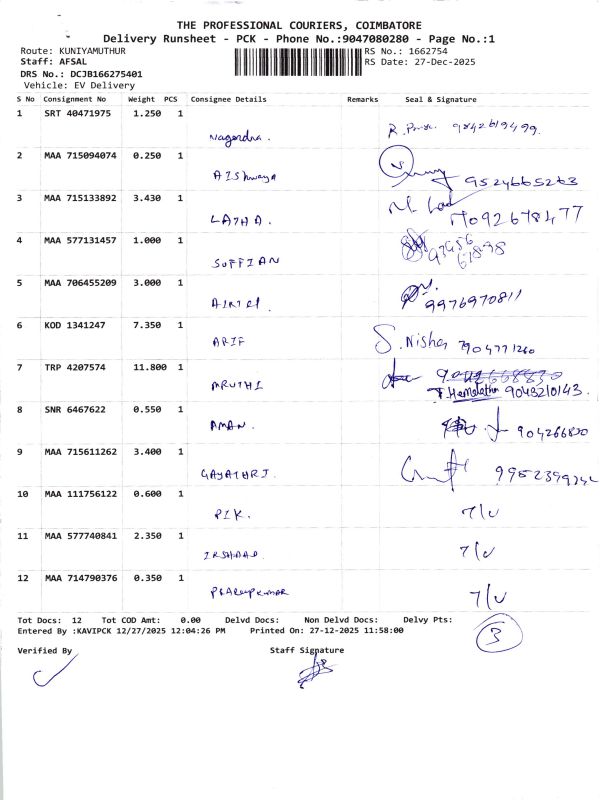 THE PROFESSIONAL COURIERS, COIMBATORE
Delivery Runsheet - PCK - Phone No.:9047080280 - Page No.:1
Route: KUNIYAMUTHUR RS No.: 1662754
Staff: AFSAL RS Date: 27-Dec-2025
DRS No.: DCJB166275401
Vehicle: EV Delivery
S No Consignment No Weight PCS Consignee Details Remarks Seal & Signature
1 SRT 40471975 1.250 1
Nagendra. 9842619499.
2 MAA 715094074 0.250 1
AIShwaya 9524665263
3 MAA 715133892 3.430 1
LATHA. 7092678477
4 MAA 577131457 1.000 1
SUFFIAN
5 MAA 706455209 3.000 1
AIRTEL 9976970811
6 KOD 1341247 7.350 1
ARIF S. Nisha 7904771260
7 TRP 4207574 11.800 1
MRUTHI T. Hemalatha 9043210143.
8 SNR 6467622 0.550 1
AMAN. 904266830
9 MAA 715611262 3.400 1
GAYATHRI.
10 MAA 111756122 0.600 1
PIK. 7/U
11 MAA 577740841 2.350 1
IRSHAAD 7/U
12 MAA 714790376 0.350 1
7/U
Tot Docs: 12 Tot COD Amt: 0.00 Delvd Docs: Non Delvd Docs: Delvy Pts:
3
Entered By :KAVIPCK 12/27/2025 12:04:26 PM Printed On: 27-12-2025 11:58:00
Verified By Staff Signature